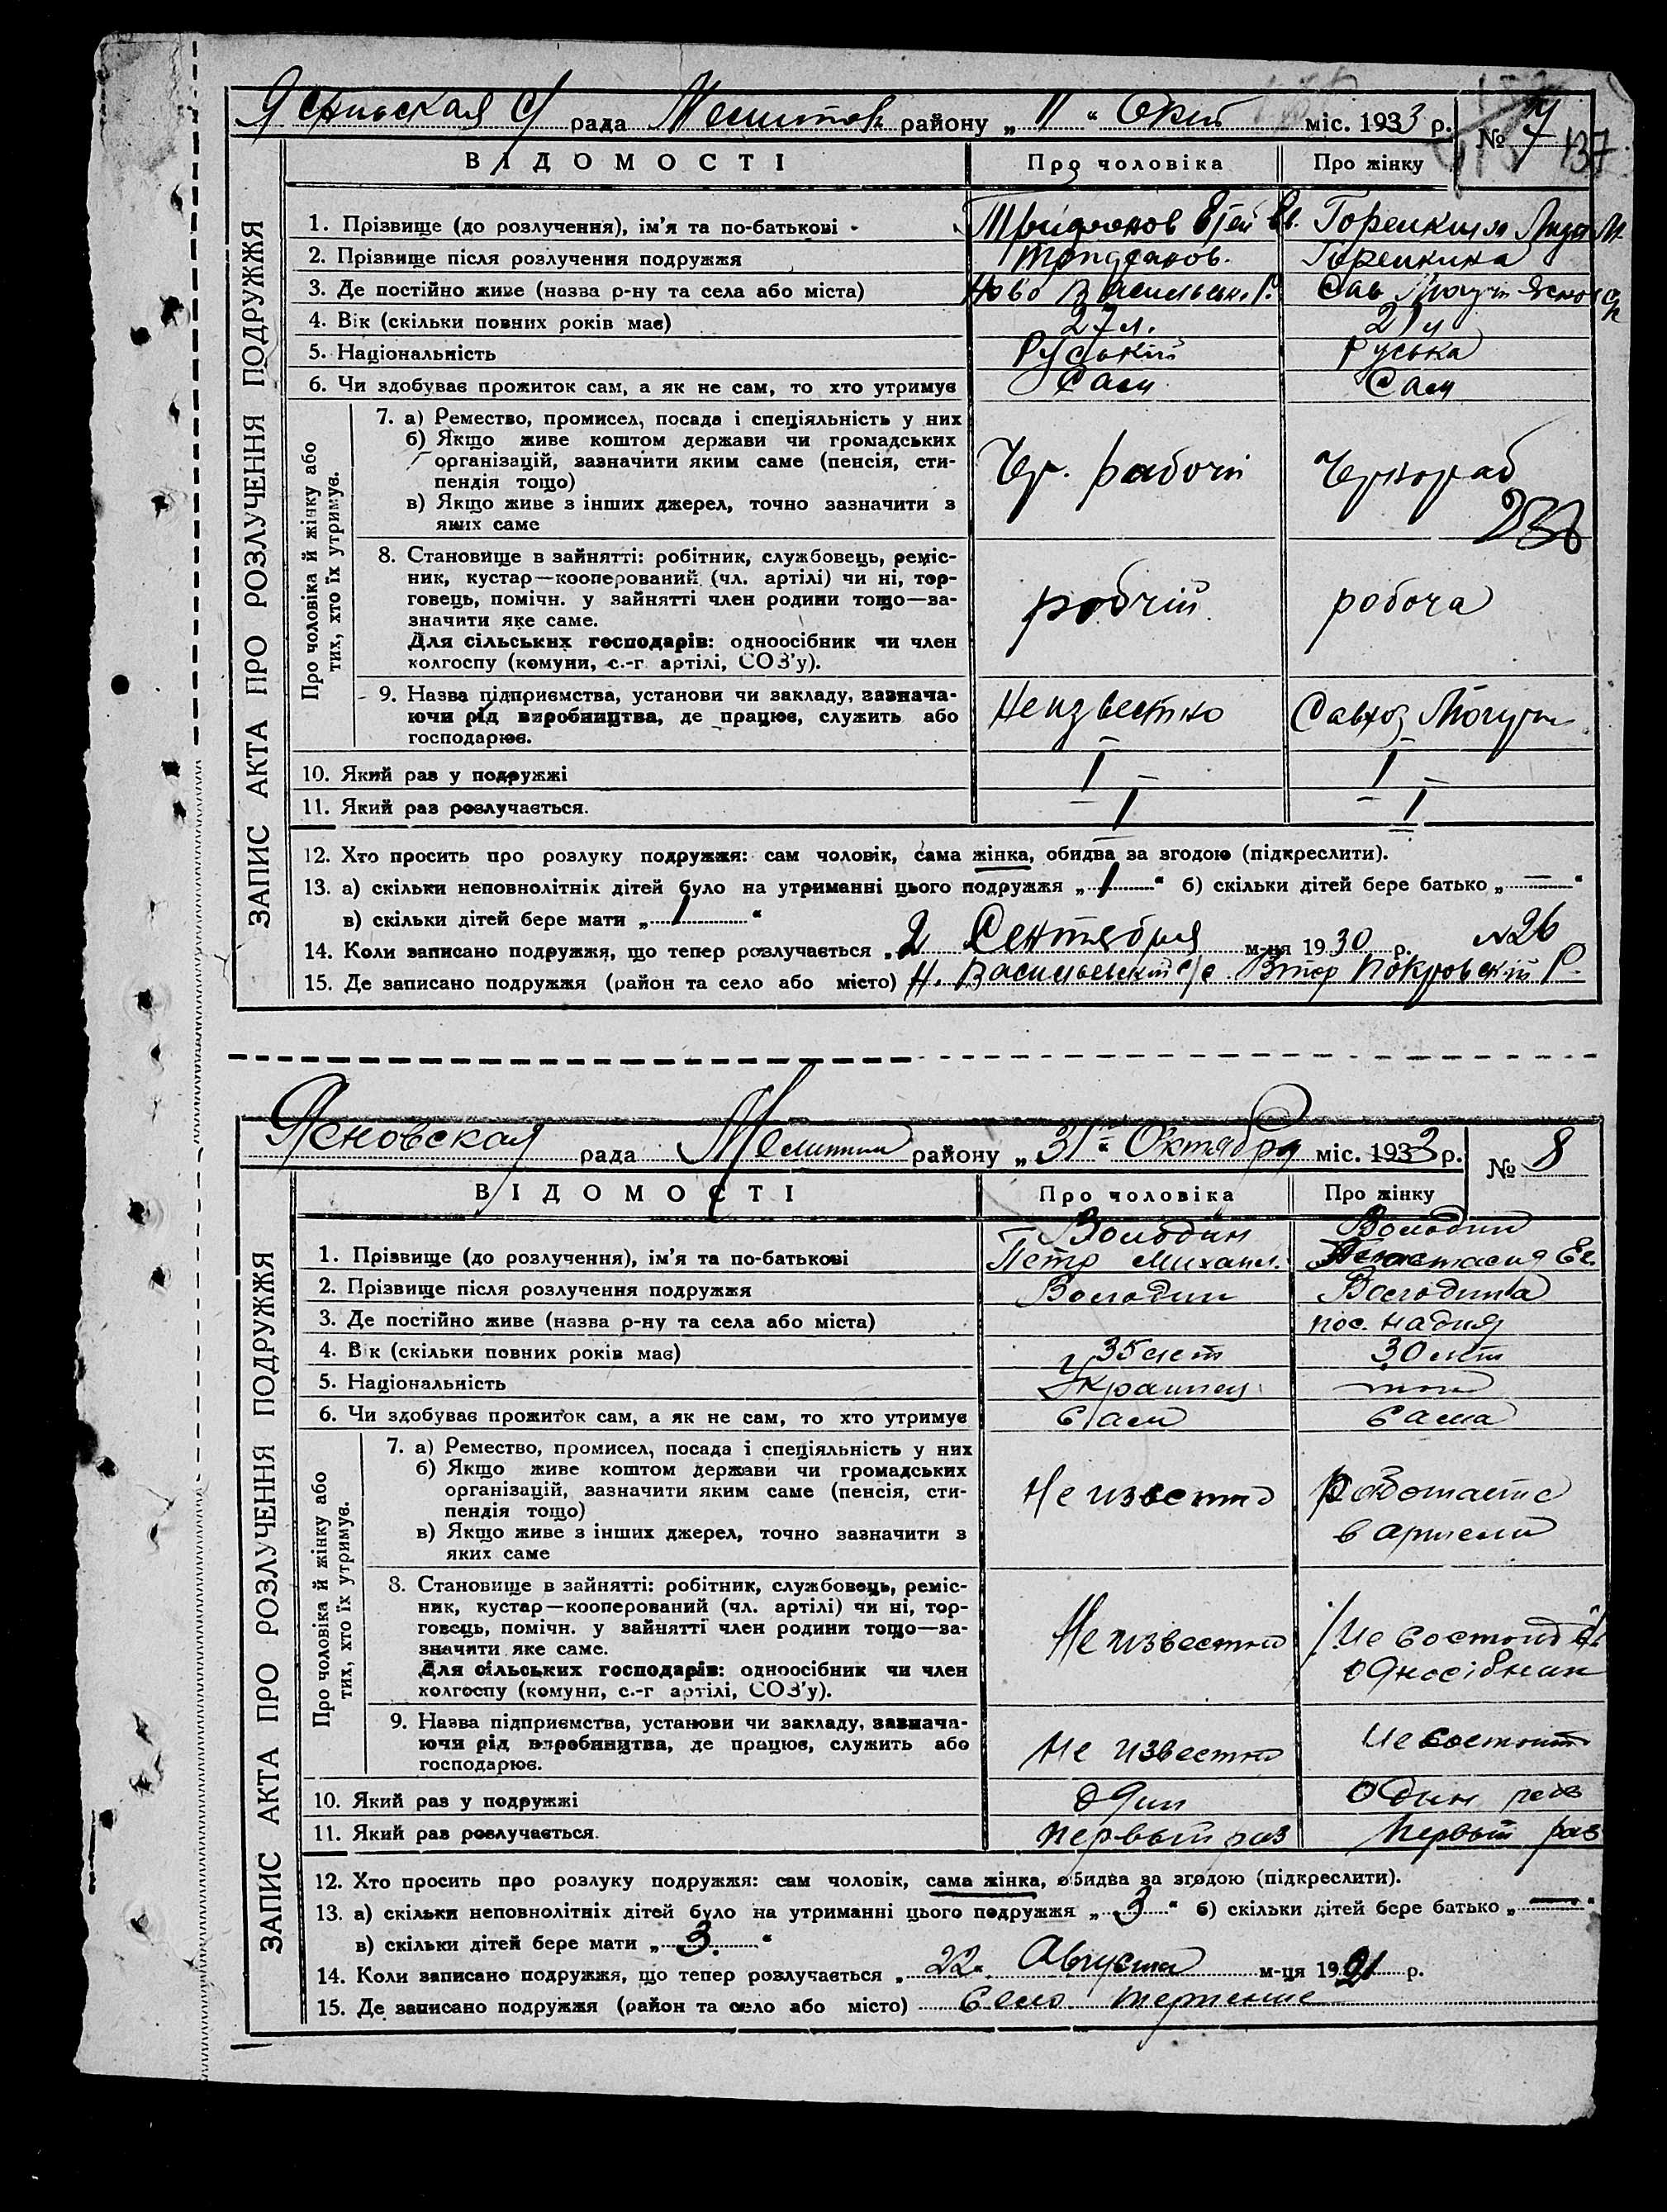 рада Мелитоп району „ 11 “ Окт міс. 1933 р. № 7
137
ВІДОМОСТІ Про чоловіка Про жінку
ЗАПИС АКТА ПРО РОЗЛУЧЕННЯ ПОДРУЖЖЯ
1. Прізвище (до розлучення), ім’я та по-батькові
2. Прізвище після розлучення подружжя
3. Де постійно живе (назва р-ну та села або міста) Ново Васильевк. Р.
4. Вік (скільки повних років має) 27 л. 21 л
5. Національність Руський Руська
6. Чи здобуває прожиток сам, а як не сам, то хто утримує Сам Сам
Про чоловіка й жінку або тих, хто їх утримує.
7. а) Ремество, промисел, посада і спеціяльність у них
б) Якщо живе коштом держави чи громадських
організацій, зазначити яким саме (пенсія, сти-
пендія тощо)
Чр. рабочі Чрнораб
в) Якщо живе з інших джерел, точно зазначити з
яких саме
238
8. Становище в зайнятті: робітник, службовець, реміс-
ник, кустар—кооперований (чл. артілі) чи ні, тор-
говець, помічн. у зайнятті член родини тощо—за-
значити яке саме.
робчій робоча
Для сільських господарів: одноосібник чи член
колгоспу (комуни, с.-г артілі, СОЗ’у).
9. Назва підприємства, установи чи закладу, зазнача-
ючи рід виробництва, де працює, служить або
господарює.
Неизвестно Савхоз
10. Який раз у подружжі 1 — 1 —
11. Який раз розлучається. 1 1
12. Хто просить про розлуку подружжя: сам чоловік, сама жінка, обидва за згодою (підкреслити).
13. а) скільки неповнолітніх дітей було на утриманні цього подружжя „ 1 “ б) скільки дітей бере батько „ — “
в) скільки дітей бере мати „ 1 “
14. Коли записано подружжя, що тепер розлучається „ 2 Сентября м-ця 1930 р. №26
15. Де записано подружжя (район та село або місто) Н. Васильевский с/с Покровскій Р.
Ясновская рада Мелитоп району „ 31 “ Октября міс. 1933 р. № 8
ВІДОМОСТІ Про чоловіка Про жінку
ЗАПИС АКТА ПРО РОЗЛУЧЕННЯ ПОДРУЖЖЯ
Володин Володин
1. Прізвище (до розлучення), ім’я та по-батькові Петр Михаил. Анастасия Ев.
2. Прізвище після розлучення подружжя Володин Володина
3. Де постійно живе (назва р-ну та села або міста) пос. Надия
4. Вік (скільки повних років має) 35 лет 30 лет
5. Національність Украинец тож
6. Чи здобуває прожиток сам, а як не сам, то хто утримує Сам Сама
Про чоловіка й жінку або тих, хто їх утримує.
7. а) Ремество, промисел, посада і спеціяльність у них
б) Якщо живе коштом держави чи громадських
організацій, зазначити яким саме (пенсія, сти-
пендія тощо)
Не известно Работает
в артели
в) Якщо живе з інших джерел, точно зазначити з
яких саме
8. Становище в зайнятті: робітник, службовець, реміс-
ник, кустар—кооперований (чл. артілі) чи ні, тор-
говець, помічн. у зайнятті член родини тощо—за-
значити яке саме.
Не известно Не состоит
Для сільських господарів: одноосібник чи член
колгоспу (комуни, с.-г артілі, СОЗ’у).
9. Назва підприємства, установи чи закладу, зазнача-
ючи рід виробництва, де працює, служить або
господарює.
Не известно Не состоит
10. Який раз у подружжі Один Один раз
11. Який раз розлучається. Первый раз Первый раз
12. Хто просить про розлуку подружжя: сам чоловік, сама жінка, обидва за згодою (підкреслити).
13. а) скільки неповнолітніх дітей було на утриманні цього подружжя „ 3 “ б) скільки дітей бере батько „ — “
в) скільки дітей бере мати „ 3. “
14. Коли записано подружжя, що тепер розлучається „ 22 Августа м-ця 1921 р.
15. Де записано подружжя (район та село або місто) Село Терпение